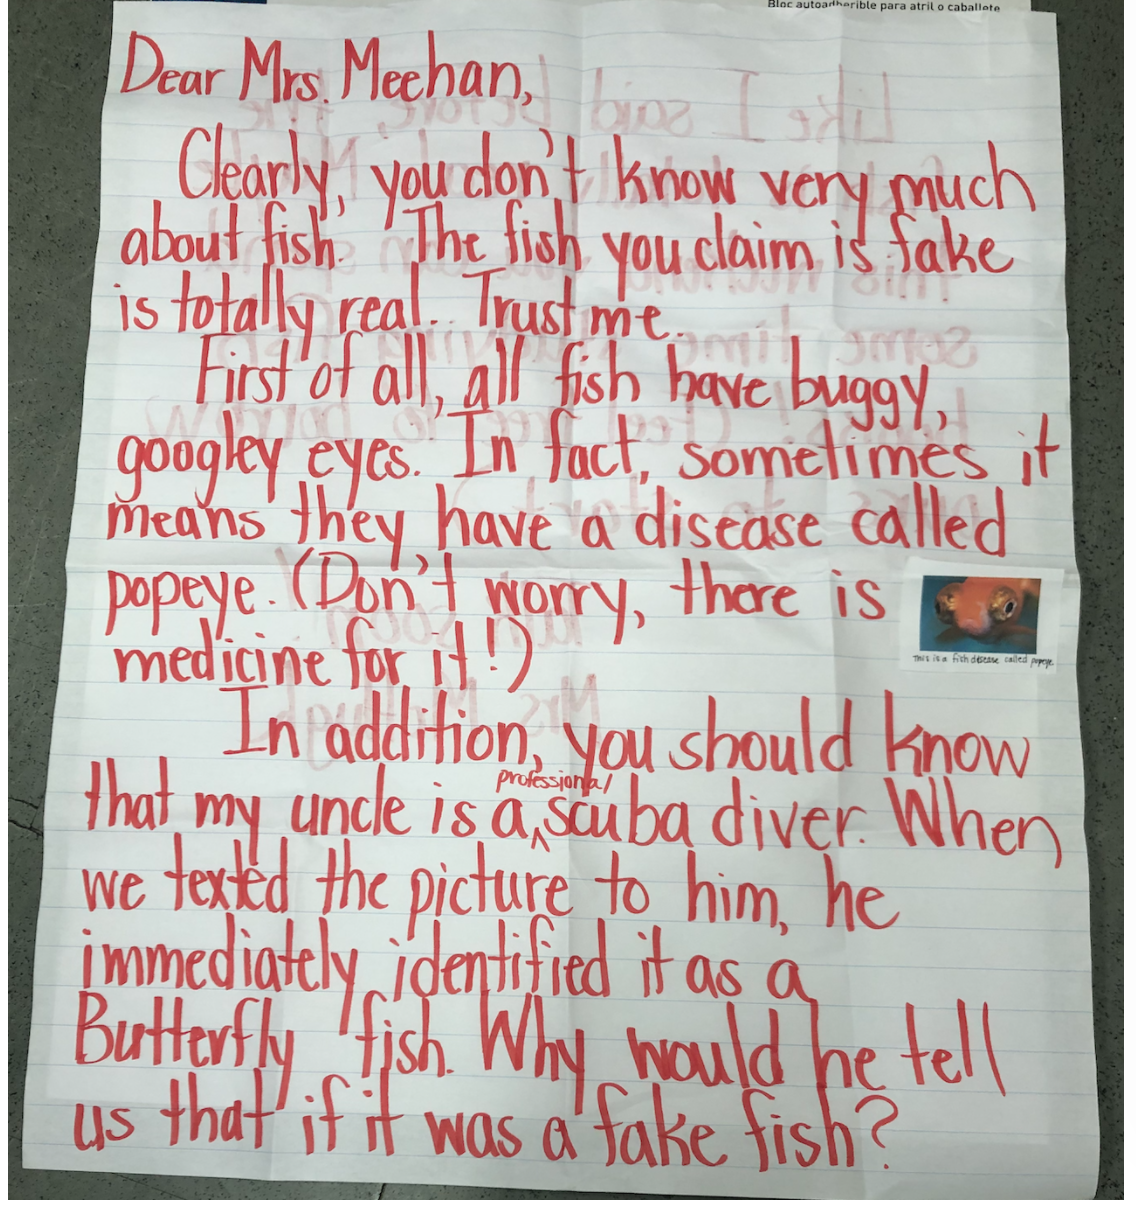 Bloc autoadherible para atril o caballete
Dear Mrs. Meehan,
Clearly, you don't know very much
about fish. The fish you claim is fake
is totally real. Trust me.
First of all, all fish have buggy,
googley eyes. In fact, sometimes it
means they have a disease called
popeye. (Don't worry, there is
medicine for it!)
This is a fish disease called popeye.
In addition, you should know
professional
that my uncle is a ^ scuba diver. When
we texted the picture to him, he
immediately identified it as a
Butterfly fish. Why would he tell
us that if it was a fake fish?